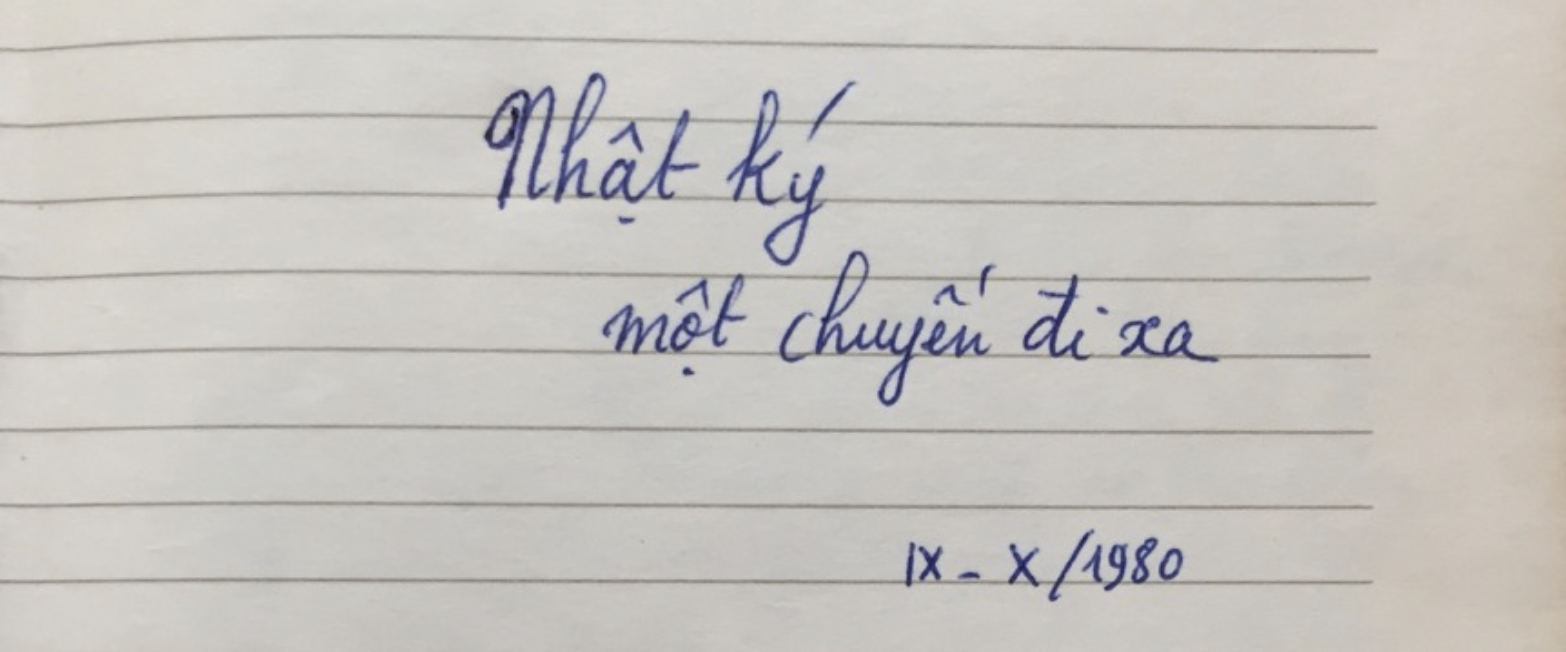 Nhật ký
một chuyến đi xa
IX - X/1980